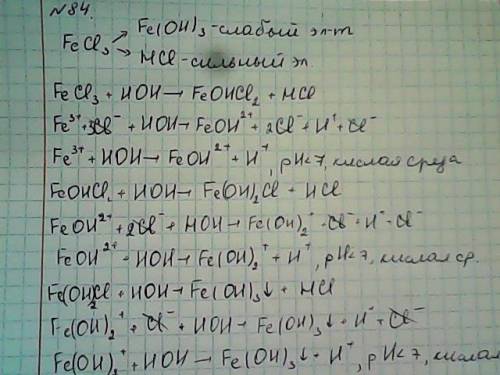 №84.
FeCl₃ ↗ Fe(OH)₃ - слабый эл-т
↘ HCl - сильный эл.
FeCl₃ + HOH → FeOHCl₂ + HCl
Fe³⁺ + 3Cl⁻ + HOH → FeOH²⁺ + 2Cl⁻ + H⁺ + Cl⁻
Fe³⁺ + HOH → FeOH²⁺ + H⁺, pH<7, кислая среда
FeOHCl₂ + HOH → Fe(OH)₂Cl + HCl
FeOH²⁺ + 2Cl⁻ + HOH → Fe(OH)₂⁺ + Cl⁻ + H⁺ + Cl⁻
FeOH²⁺ + HOH → Fe(OH)₂⁺ + H⁺, pH<7, кислая ср.
Fe(OH)₂Cl + HOH → Fe(OH)₃↓ + HCl
Fe(OH)₂⁺ + Cl⁻ + HOH → Fe(OH)₃↓ + H⁺ + Cl⁻
Fe(OH)₂⁺ + HOH → Fe(OH)₃↓ + H⁺, pH<7, кислая